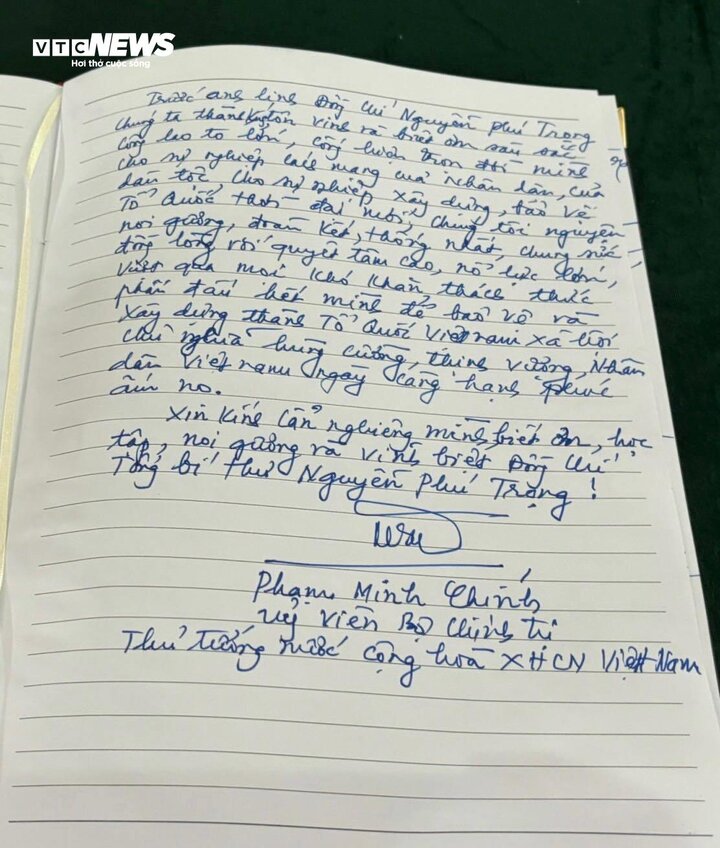 VTC NEWS
Hơi thở cuộc sống
Trước anh linh Đồng chí Nguyễn Phú Trọng
chúng ta thành kính tôn vinh và biết ơn sâu sắc
công lao to lớn, cống hiến trọn đời mình
cho sự nghiệp cách mạng của Nhân dân, của
dân tộc cho sự nghiệp xây dựng, bảo vệ
Tổ Quốc thời đại mới, chúng tôi nguyện
noi gương, đoàn kết, thống nhất, chung sức,
đồng lòng với quyết tâm cao, nỗ lực lớn,
vượt qua mọi khó khăn thách thức
phấn đấu hết mình để bảo vệ và
xây dựng thành Tổ Quốc Việt nam xã hội
chủ nghĩa hùng cường, thịnh vượng, Nhân
dân Việt nam ngày càng hạnh phúc
ấm no.
Xin kính cẩn nghiêng mình biết ơn, học
tập, noi gương và vĩnh biệt Đồng chí
Tổng bí thư Nguyễn Phú Trọng!
Phạm Minh Chính
Uỷ viên Bộ Chính trị
Thủ tướng nước cộng hoà XHCN Việt Nam